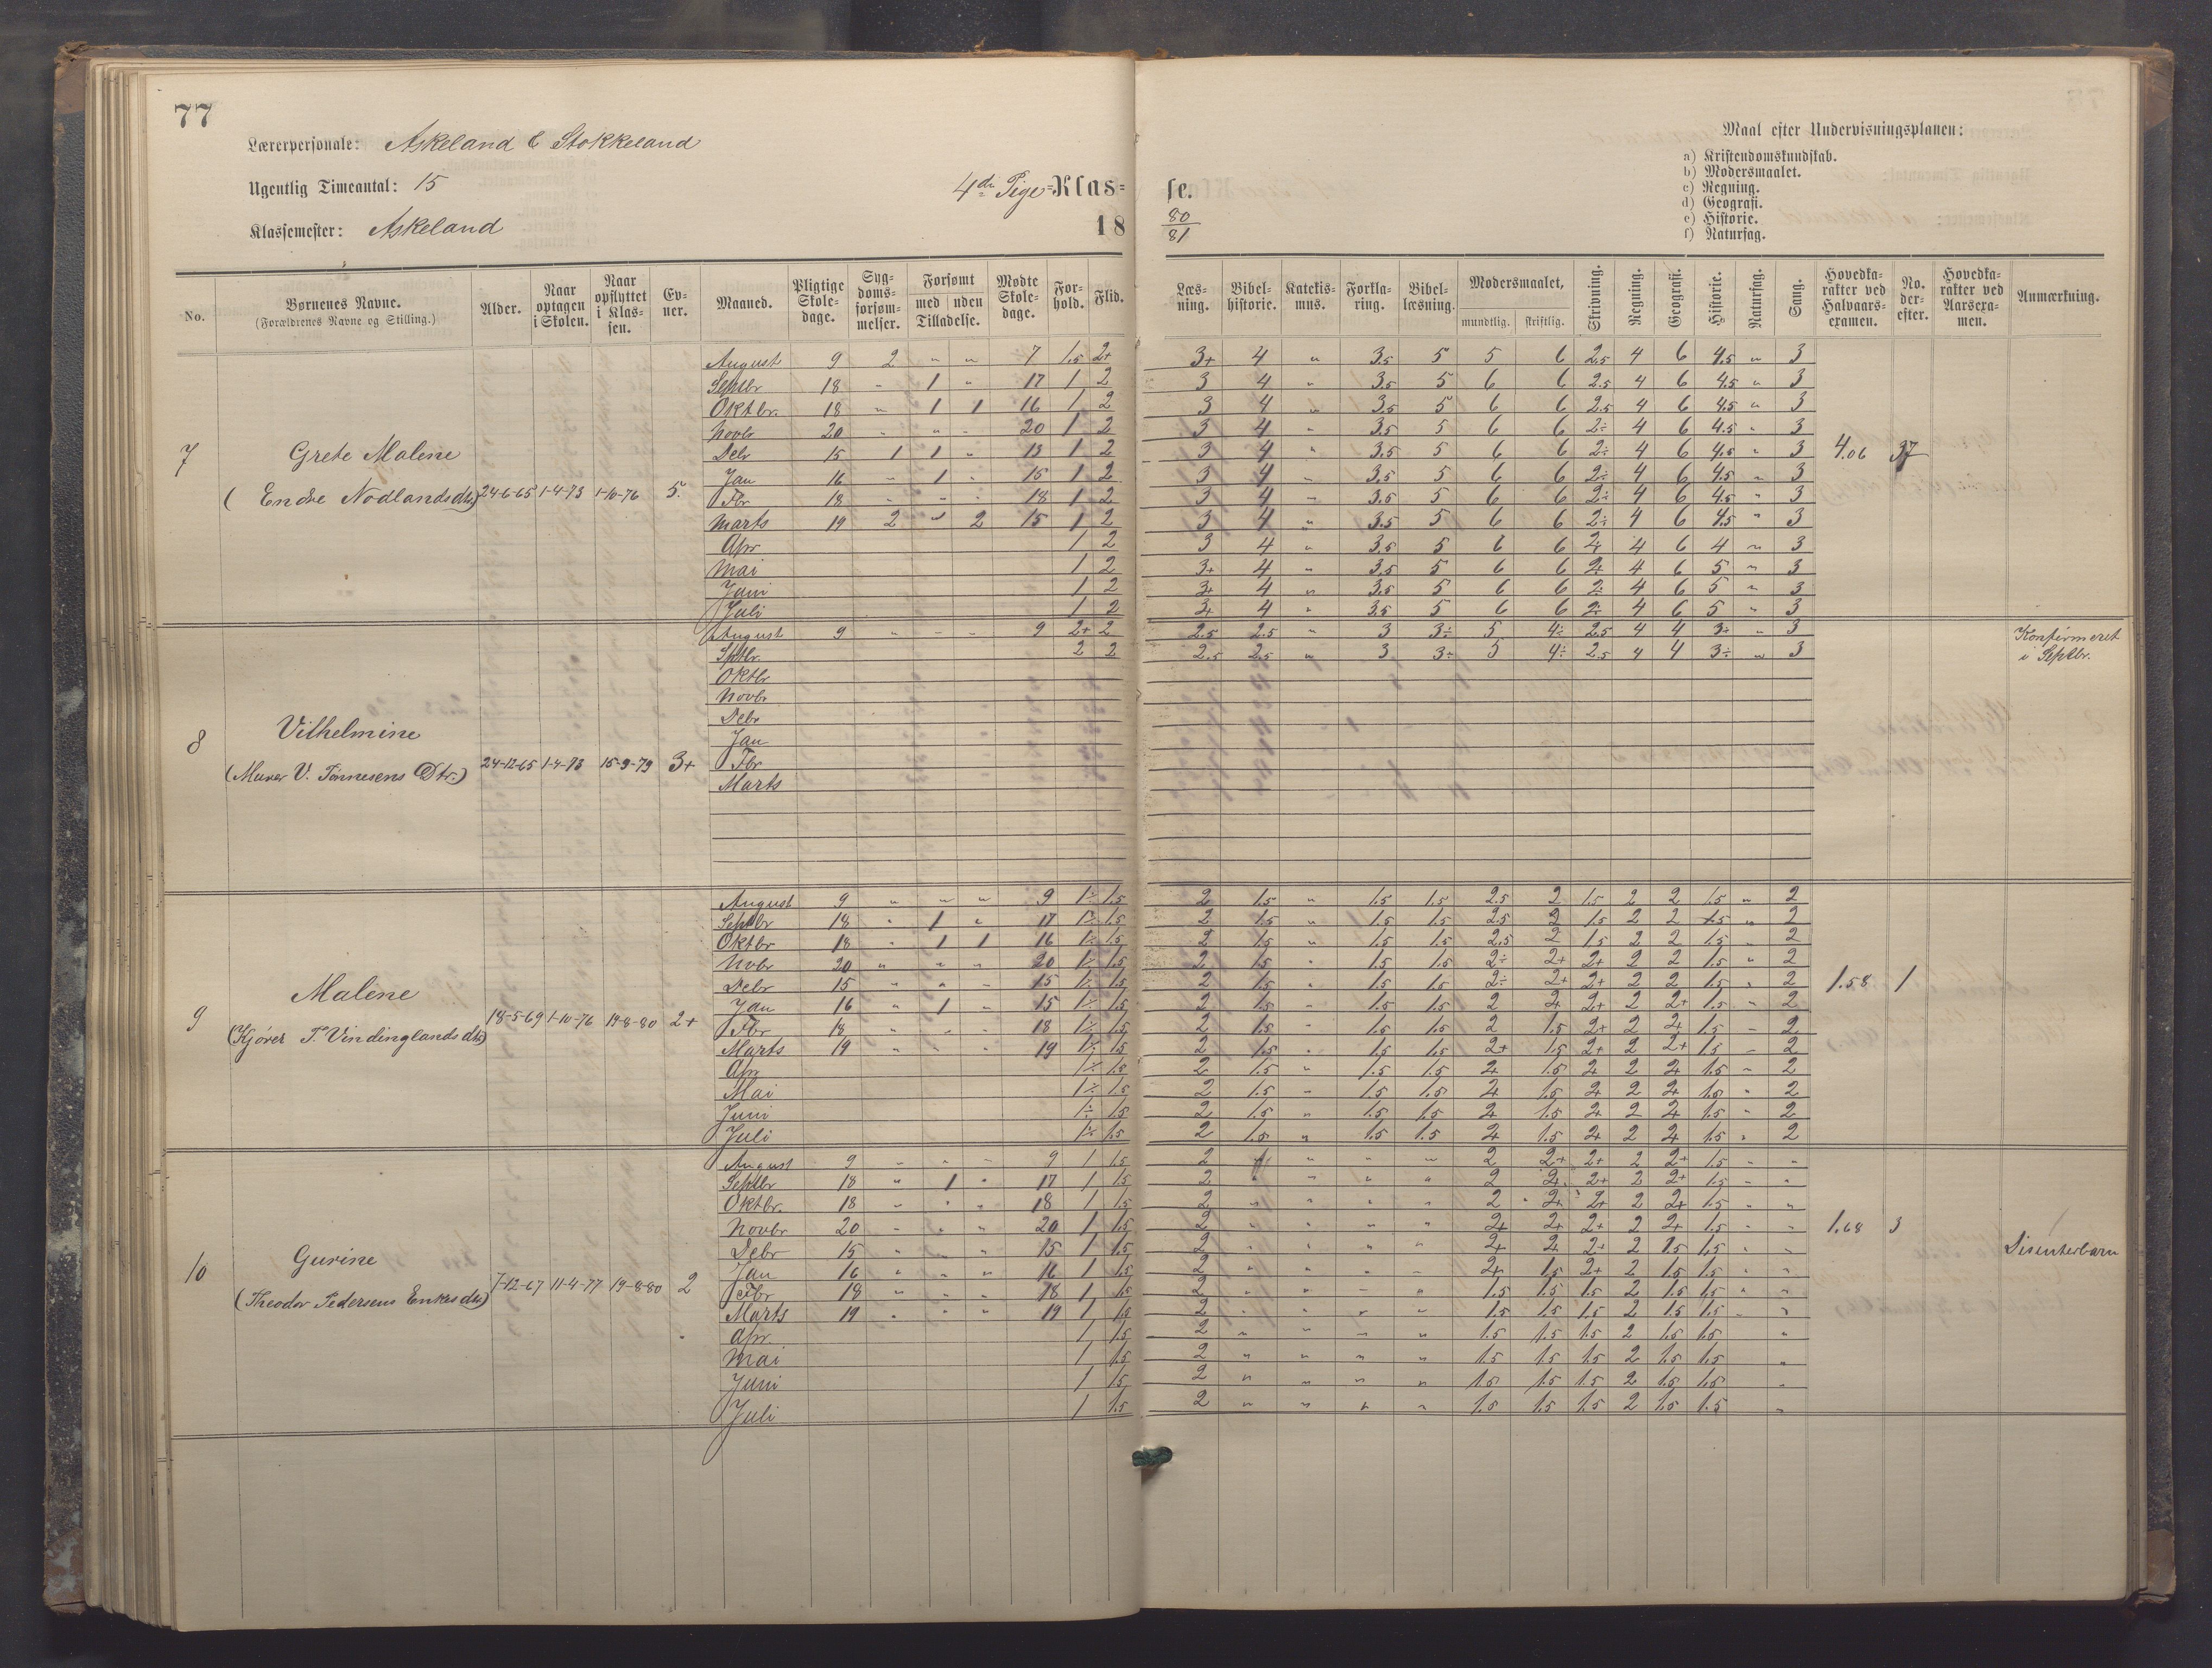 77
Lærerpersonale: Askeland & Stokkeland
Ugentlig Timeantal: 15
4de Pige-Klas-
se.
Klassemester: Askeland
18
80
81
Maal efter Undervisningsplanen:
a) Kristendomskundskab.
b) Modersmaalet.
c) Regning.
d) Geografi.
e) Historie.
f) Naturfag.
No. | Børnenes Navne. (Forældrenes Navne og Stilling.) | Alder. | Naar optagen i Skolen. | Naar opflyttet i Klas-sen. | Ev-ner. | Maaned. | Pligtige Skole-dage. | Syg-doms-forsøm-melser. | Forsømt med Tilladelse. | uden Tilladelse. | Mødte Skole-dage. | For-hold. | Flid. | Læs-ning. | Bibel-historie. | Katekis-mus. | Forkla-ring. | Bibel-læsning. | Modersmaalet, mundtlig. | skriftlig. | Skrivning. | Regning. | Geografi. | Historie. | Naturfag. | Sang. | Hovedka-rakter ved Halvaars-examen. | No. der-efter. | Hovedka-rakter ved Aarsexa-men. | Anmærkning.
7 Grete Malene
(Endre Nodlands dtr) 24-6-65 1-4-73 1-10-76 5.
August 9 2 " " 7 1.5 2+ 3+ 4 " 3.5 5 5 6 2.5 4 6 4.5 " 3
Septbr 18 " 1 " 17 1 2 3 4 " 3.5 5 6 6 2.5 4 6 4.5 " 3
Oktbr. 18 " 1 1 16 1 2 3 4 " 3.5 5 6 6 2.5 4 6 4.5 " 3
Novbr 20 " " " 20 1 2 3 4 " 3.5 5 6 6 2÷ 4 6 4.5 " 3
Debr 15 1 1 " 13 1 2 3 4 " 3.5 5 6 6 2÷ 4 6 4.5 " 3 4.06 37
Jan 16 " 1 " 15 1 2 3 4 " 3.5 5 6 6 2÷ 4 6 4.5 " 3
Fbr 18 " " " 18 1 2 3 4 " 3.5 5 6 6 2÷ 4 6 4.5 " 3
Marts 19 2 " 2 15 1 2 3 4 " 3.5 5 6 6 2÷ 4 6 4.5 " 3
Apr 1 2 3 4 " 3.5 5 6 6 2÷ 4 6 4 " 3
Mai 1 2 3+ 4 " 3.5 5 6 6 2÷ 4 6 5 " 3
Juni 1 2 3+ 4 " 3.5 5 6 6 2÷ 4 6 5 " 3
Juli 1 2 3+ 4 " 3.5 5 6 6 2÷ 4 6 5 " 3
8 Vilhelmine
(Murer V. Tönnesens Dtr.) 24-12-65 1-4-73 15-9-79 3+
August 9 " " " 9 2+ 2 2.5 2.5 " 3 3÷ 5 4÷ 2.5 4 4 3÷ " 3
Sptbr. 2 2 2.5 2.5 " 3 3÷ 5 4÷ 2.5 4 4 3÷ " 3
Konfirmeret
i Septbr.
Oktbr
Novbr
Debr
Jan
Fbr
Marts
9 Malene
(Kjörer T. Vindinglands dtr) 18-5-69 1-10-76 19-8-80 2+
August 9 " " " 9 1÷ 1.5 2 1.5 " 1.5 1.5 2.5 2 1.5 2 2 1.5 " 2
Septbr 18 " 1 " 17 1÷ 1.5 2 1.5 " 1.5 1.5 2.5 2 1.5 2 2 1.5 " 2
Oktbr 18 " 1 1 16 1÷ 1.5 2 1.5 " 1.5 1.5 2.5 2 1.5 2 2 1.5 " 2
Novbr 20 " " " 20 1÷ 1.5 2 1.5 " 1.5 1.5 2÷ 2+ 2+ 2 2 1.5 " 2
Debr 15 " " " 15 1÷ 1.5 2 1.5 " 1.5 1.5 2÷ 2+ 2+ 2 2 1.5 " 2 1.58 1
Jan 16 " 1 " 15 1÷ 1.5 2 1.5 " 1.5 1.5 2 2+ 2+ 2 2+ 1.5 " 2
Fbr 18 " " " 18 1÷ 1.5 2 1.5 " 1.5 1.5 2 1.5 2+ 2 2+ 1.5 " 2
Marts 19 " " " 19 1÷ 1.5 2 1.5 " 1.5 1.5 2+ 1.5 2+ 2 2+ 1.5 " 2
Apr 1÷ 1.5 2 1.5 " 1.5 1.5 2+ 1.5 2+ 2 2+ 1.5 " 2
Mai 1÷ 1.5 2 1.5 " 1.5 1.5 2+ 1.5 2+ 2 2+ 1.5 " 2
Juni 1÷ 1.5 2 1.5 " 1.5 1.5 2+ 1.5 2+ 2 2+ 1.5 " 2
Juli 1÷ 1.5 2 1.5 " 1.5 1.5 2+ 1.5 2+ 2 2+ 1.5 " 2
10 Gurine
(Theodor Pedersens Enkes dtr) 7-12-67 11-4-77 19-8-80 2
August 9 " " " 9 1 1.5 2 " " " 2 2+ 2+ 2 2+ 1.5 " "
Septbr 18 " 1 " 17 1 1.5 2 " " " " 2 2+ 2+ 2 2+ 1.5 " "
Oktbr. 18 " " " 18 1 1.5 2 " " " " 2 2+ 2+ 2 2+ 1.5 " "
Novbr 20 " " " 20 1 1.5 2 " " " " 2+ 2+ 2+ 2 2+ 1.5 " " 1.68 3
Debr 15 " " " 15 1 1.5 2 " " " " 2+ 2+ 2+ 2 1.5 1.5 " "
Disenterbarn
Jan 16 " " " 16 1 1.5 2 " " " " 2+ 1.5 2+ 2 1.5 1.5 " "
Febr 18 " " " 18 1 1.5 2 " " " " 1.5 1.5 1.5 2 1.5 1.5 " "
Marts 19 " " " 19 1 1.5 2 " " " " 1.5 1.5 1.5 2 1.5 1.5 " "
Apr. 1 1.5 2 " " " " 1.5 1.5 1.5 2 1.5 1.5 "
Mai 1 1.5 2 " " " " 1.5 1.5 1.5 2 1.5 1.5 "
Juni 1 1.5 2 " " " " 1.5 1.5 1.5 2 1.5 1.5 "
Juli 1 1.5 2 " " " " 1.5 1.5 1.5 2 1.5 1.5 "